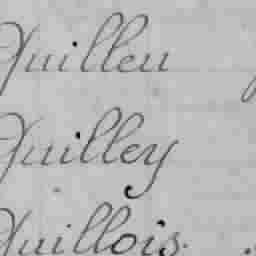 Quilleu
Quilley
Quillois.